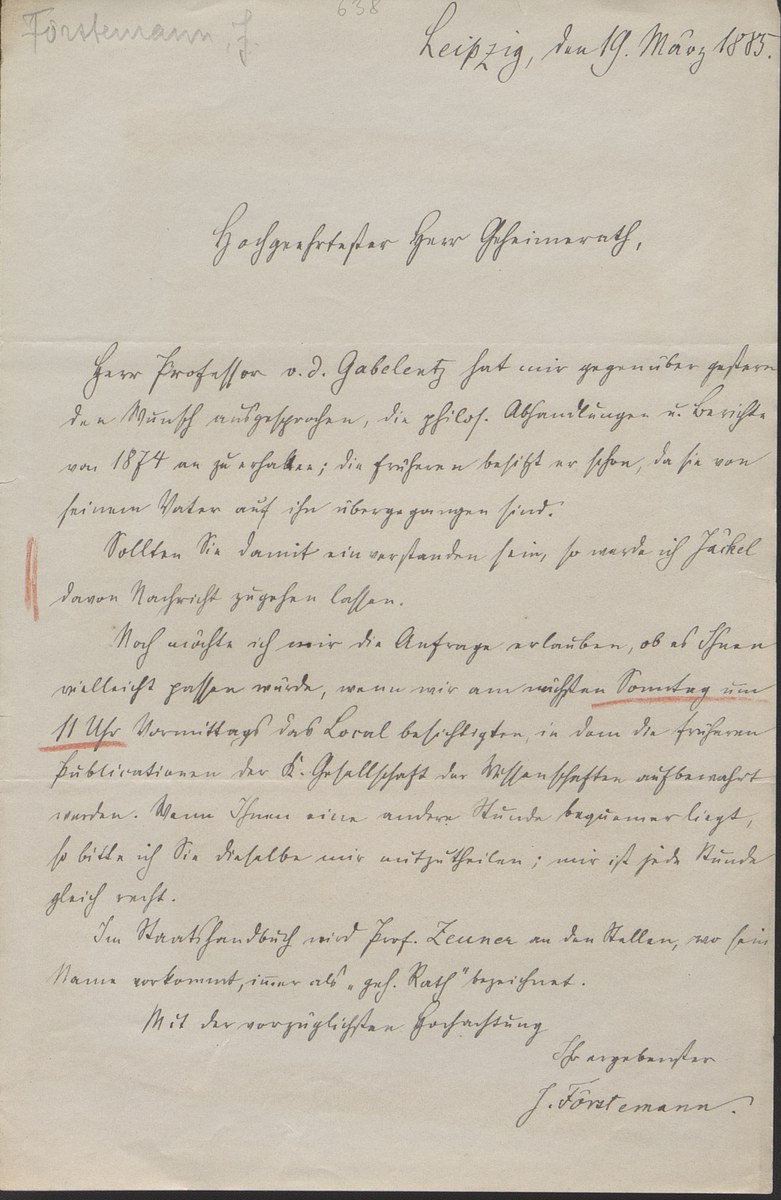 Förstemann, J.
638
Leipzig, den 19. März 1885.
Hochgeehrtester Herr Geheimerath,
Herr Professor v. d. Gabelentz hat mir gegenüber gestern
den Wunsch ausgesprochen, die philos. Abhandlungen u. Berichte
von 1874 an zu erhalten; die früheren besitzt er schon, da sie von
seinem Vater auf ihn übergegangen sind.
Sollten Sie damit einverstanden sein, so werde ich Jäckel
davon Nachricht zugehen lassen.
Noch möchte ich mir die Anfrage erlauben, ob es Ihnen
vielleicht passen würde, wenn wir am nächsten Sonntag um
11 Uhr Vormittags das Local besichtigten, in dem die früheren
Publicationen der K. Gesellschaft der Wissenschaften aufbewahrt
werden. Wenn Ihnen eine andere Stunde bequemer liegt,
so bitte ich Sie dieselbe mir mitzutheilen; mir ist jede Stunde
gleich recht.
Im Staatshandbuch wird Prof. Zeuner an den Stellen, wo sein
Name vorkommt, im̅er als „geh. Rath" bezeichnet.
Mit der vorzüglichsten Hochachtung
Ihr ergebenster
J. Förstemann.